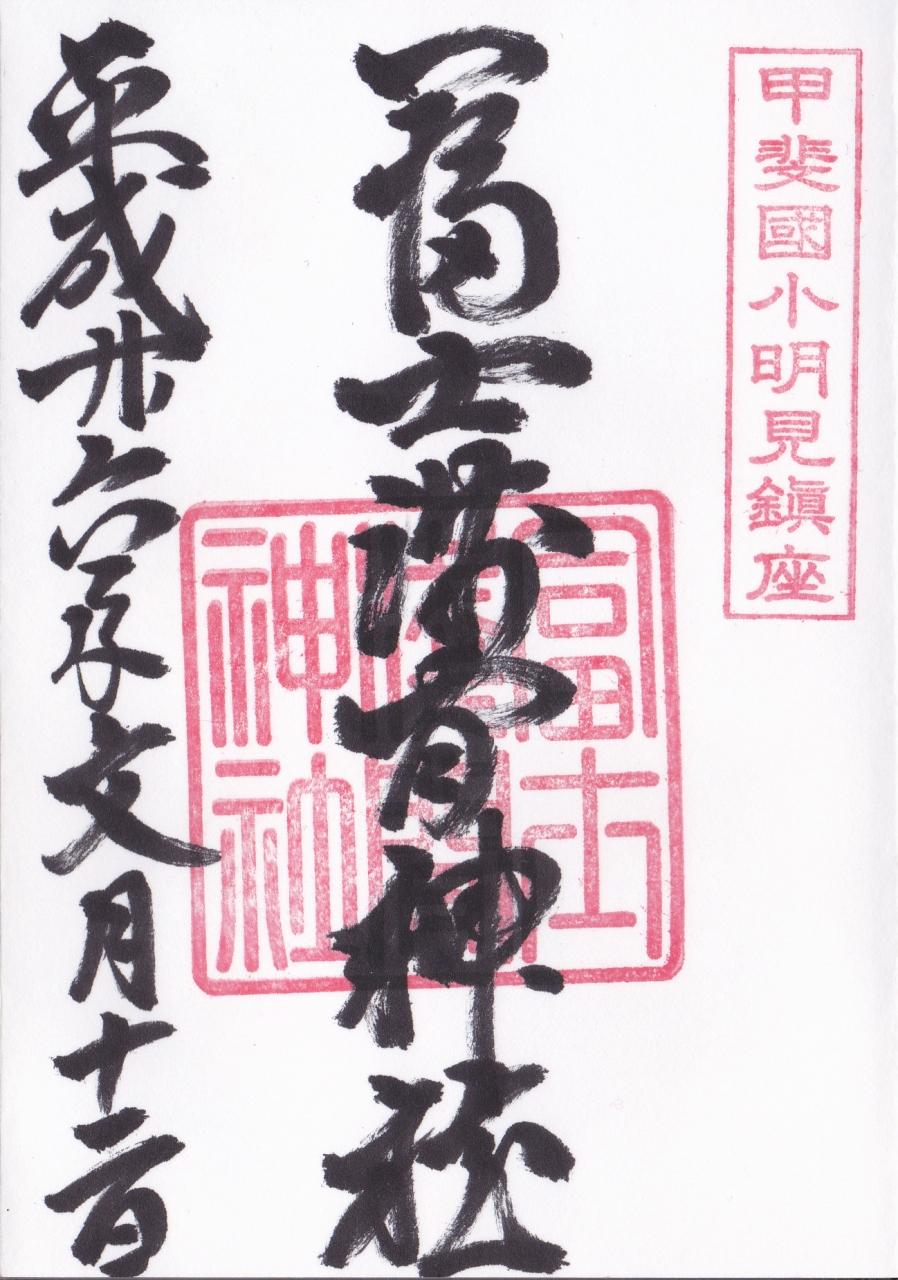 甲斐國小明見鎮座
冨士浅間神社
富士浅間神社
平成廿六年文月十二日